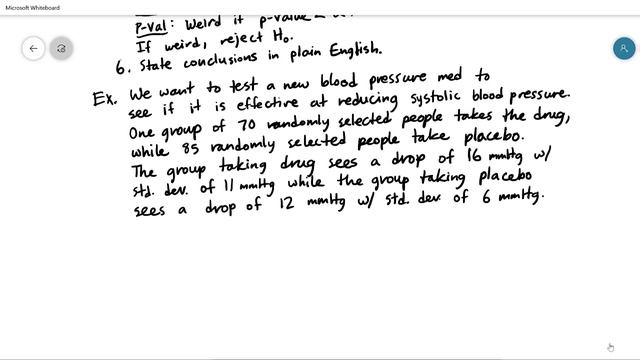 Microsoft Whiteboard
P-val: Weird if p-value
If weird, reject H₀.
6. State conclusions in plain English.
Ex. We want to test a new blood pressure med to
see if it is effective at reducing systolic blood pressure.
One group of 70 randomly selected people takes the drug,
while 85 randomly selected people take placebo.
The group taking drug sees a drop of 16 mmHg w/
std. dev. of 11 mmHg while the group taking placebo
sees a drop of 12 mmHg w/ std. dev. of 6 mmHg.